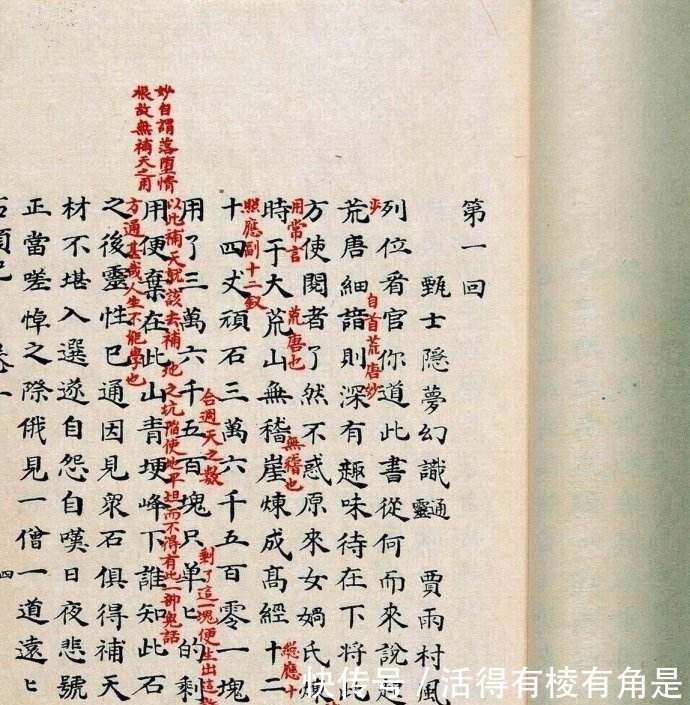 第一回
甄士隱夢幻識通靈 賈雨村風
列位看官你道此書從何而來說起
自首荒唐妙
荒唐細諳則深有趣味待在下將此
方使閱者了然不惑原來女媧氏煉
用常言
荒唐也
無稽也
總應十
時于大荒山無稽崖煉成高經十二
照應副十二釵
十四丈頑石三萬六千五百零一塊
合週天之數
剩了這一塊便生出這
用了三萬六千五百塊只单匕的剩
妙自謂落堕情
根故無補天之用
以此補天就該去補地之坑陷使地平坦而不得有此一部鬼話
用便棄在此山青埂峰下誰知此石
方通甚哉人生不能學也
之後靈性已通因見衆石俱得補天
材不堪入選遂自怨自嘆日夜悲號
正當嗟悼之際俄見一僧一道遠匕
四
快传号 / 活得有棱有角是